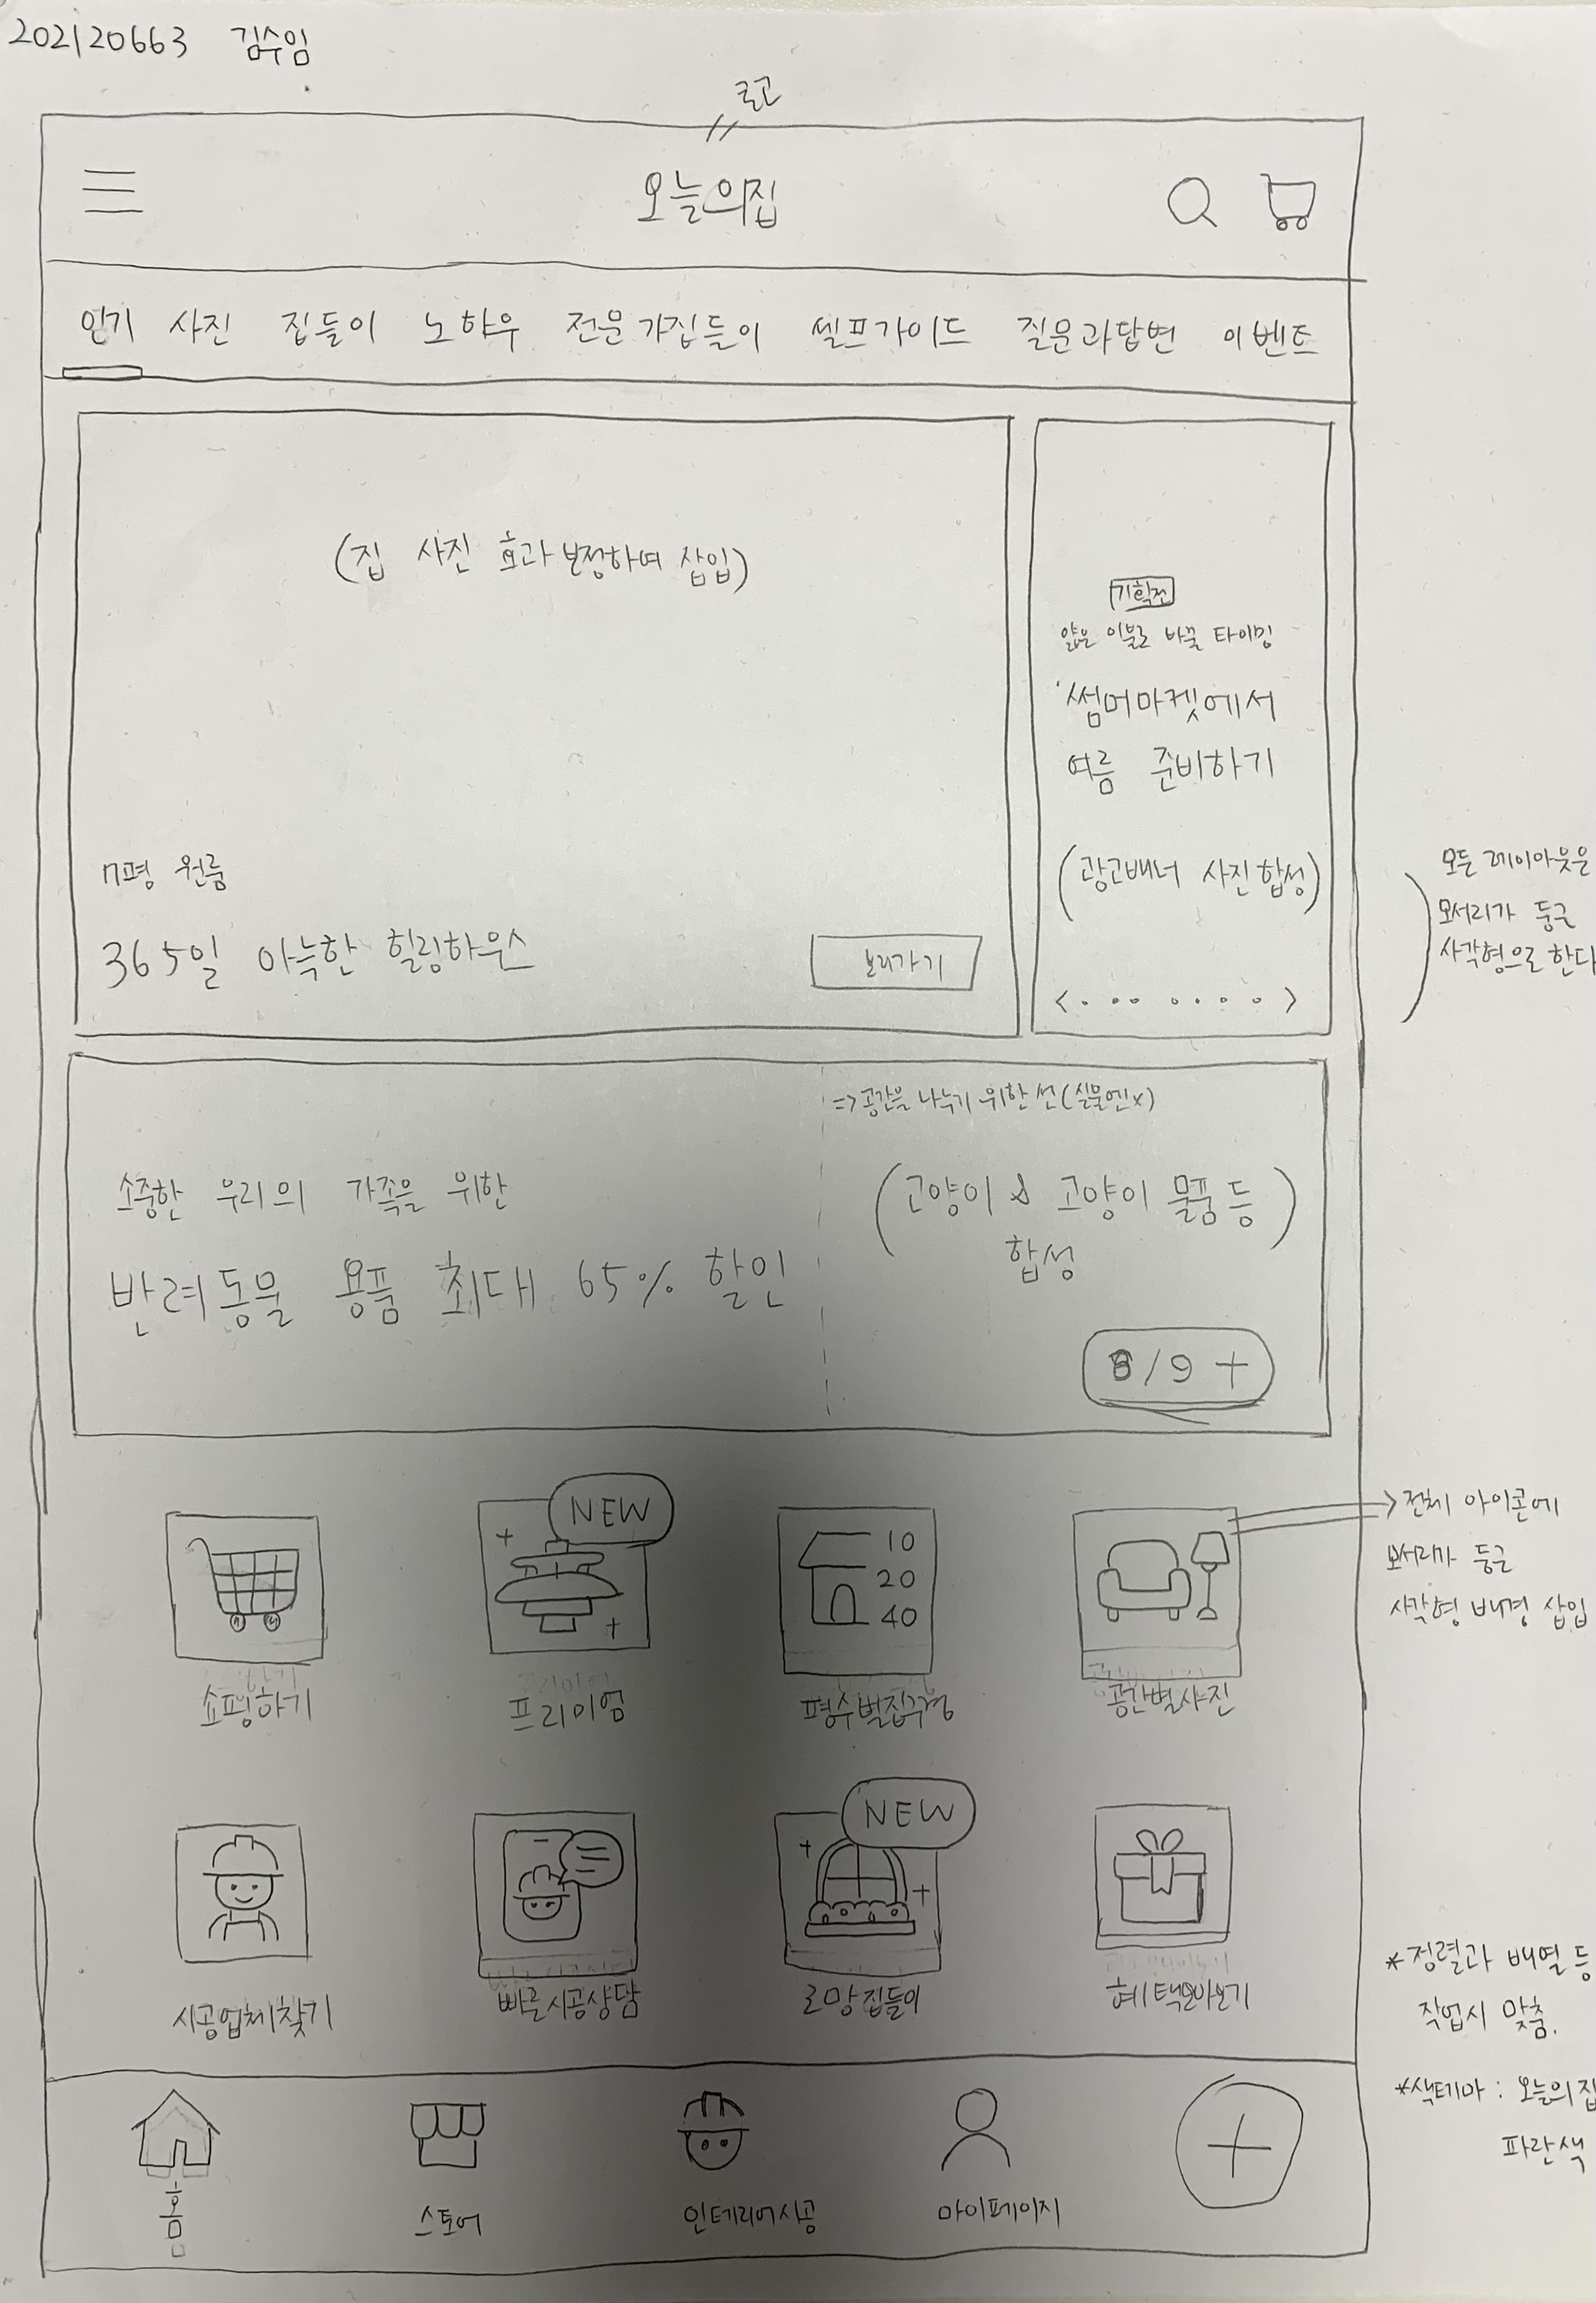 202120663 김수임
로고
오늘의집
인기 사진 집들이 노하우 전문가집들이 셀프가이드 질문과답변 이벤트
(집 사진 효과 보정하여 삽입)
7평 원룸
365일 아늑한 힐링하우스
보러가기
기획전
얇은 이불로 바꿀 타이밍
썸머마켓에서
여름 준비하기
(광고배너 사진합성)
< · · · · · · · >
모든 레이아웃은
모서리가 둥근
사각형으로 한다
=> 공간을 나누기 위한 선(실물엔x)
소중한 우리의 가족을 위한
반려동물 용품 최대 65% 할인
(고양이 & 고양이 물품 등)
합성
8/9 +
NEW
10
20
40
쇼핑하기 프리미엄 평수별집구경 공간별사진
→ 전체 아이콘에
모서리가 둥근
사각형 배경 삽입
NEW
시공업체찾기 빠른시공상담 로망집들이 혜택모아보기
*정렬과 배열 등
작업시 맞춤.
*색테마 : 오늘의집
파란색
홈 스토어 인테리어시공 마이페이지